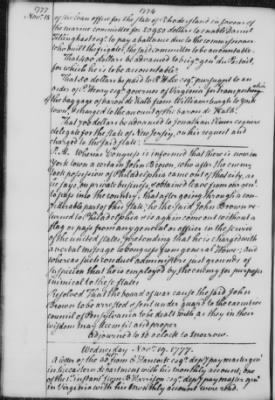 1777
Nov. 18
of the loan office for the state of Rhode island in favour of
the marine committee for
to pay a ballance due to the several persons
who built the frigates; the said committee to be accountable.
That 400 dollars be advanced to brigr genl du Portail,
for which he is to be accountable
That 50 dollars be paid to esqr pursuant to an
order of Henry esqr governor of Virginia for transporting
the baggage of baron de Kalb from Williamsburgh to York
town, & charged to the account of the baron de Kalb:
That 706 dollars be advanced to Jonathan Elmer esquire
delegate for the state of New Jersey, on his request and
charged to the said state:
Whereas Congress is informed that there is now in
York town a certain John Brown, who after the enemy
took possession of Philadelphia came out of that city, as
he says, on private business, & obtained leave from our genl.
to pass into the country: that after going through a con-
siderable part of this state, he the said John Brown re-
turned to Philadelphia & is again come out without a
flag or pass from any general or officer in the service
of the united states, pretending that he is charged with
a verbal message to Congress from general Howe: And
whereas such conduct administers just grounds of
suspicion that he is employed by the enemy for purposes
inimical to these states
Resolved That the board of war cause the said John
Brown to be arrested & sent under guard to the executive
council of Pensylvania to be dealt with as they in their
wisdom may deem fit and proper
Adjourned to 10 oClock to Morrow.
Wednesday Nov. 19. 1777.
A letter of the from E Hancock esqr depy pay master genl
in the eastern department with his monthly account; one
of the 1. instant from B Harrison esqr depy pay master genl
in Virginia with his monthly account were read.